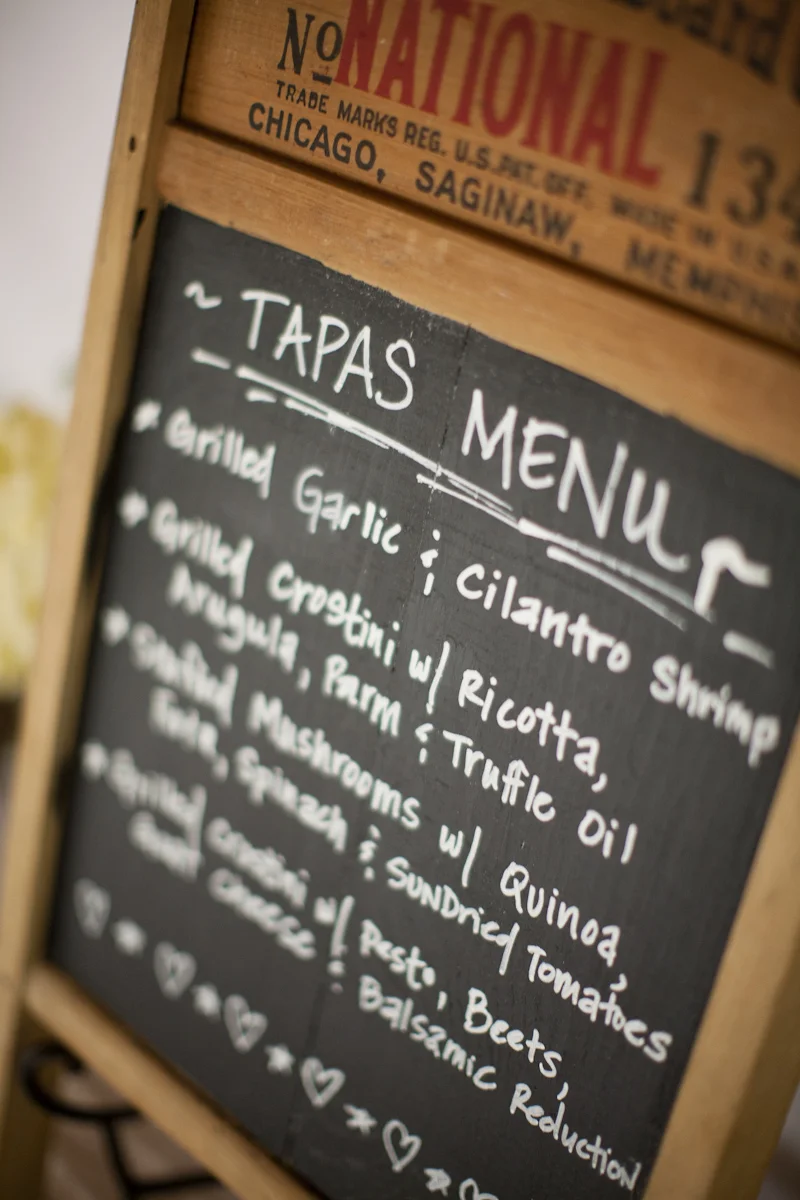 No NATIONAL 134
TRADE MARKS REG. U.S. PAT. OFF. MADE IN U.S.A.
CHICAGO, SAGINAW, MEMPHIS
~ TAPAS MENU ~
* Grilled Garlic & Cilantro Shrimp
* Grilled Crostini w/ Ricotta,
Arugula, Parm & Truffle Oil
* Stuffed Mushrooms w/ Quinoa,
Feta, Spinach & SunDried Tomatoes
* Grilled Crostini w/ Pesto, Beets,
Goat Cheese & Balsamic Reduction